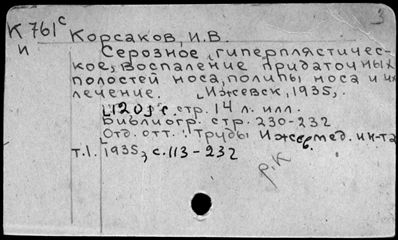 3
К 761с Корсаков, И.В.
и Серозное, гиперпластичес-
кое, воспаление придаточных
полостей носа, полипы носа и их
лечение. Ижевск, 1935,.
[120] с. стр. 14 л. илл.
Библиогр. стр. 230-232
Отд. отт.: Труды Ижев. мед. ин-та
т.1. 1935, с. 113-232
р.К